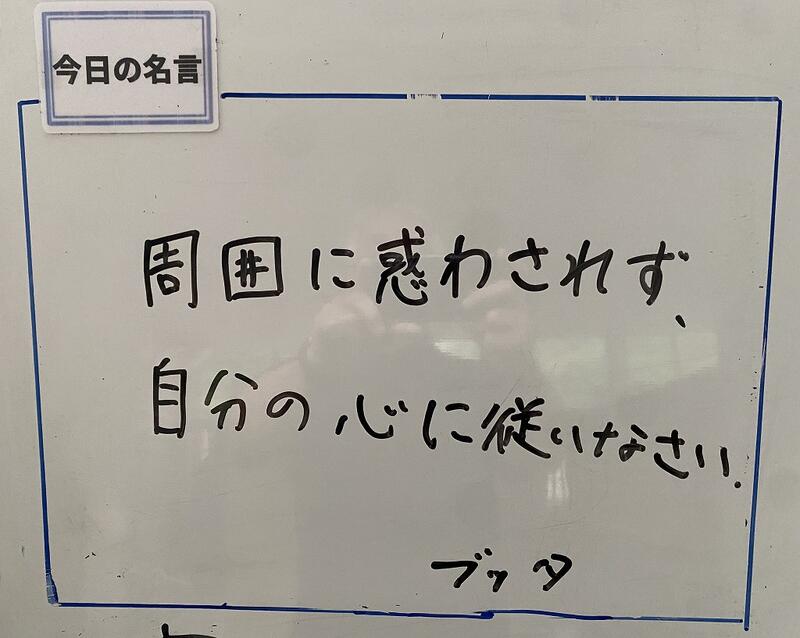 今日の名言
周囲に惑わされず、
自分の心に従いなさい.
ブッタ